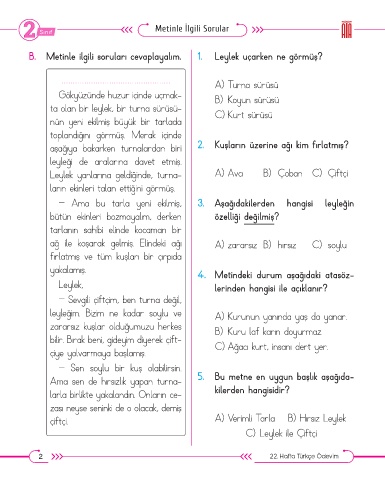 2. Sınıf
Metinle İlgili Sorular
ATA
B. Metinle ilgili soruları cevaplayalım.
Gökyüzünde huzur içinde uçmak-
ta olan bir leylek, bir turna sürüsü-
nün yeni ekilmiş büyük bir tarlada
toplandığını görmüş. Merak içinde
aşağıya bakarken turnalardan biri
leyleği de aralarına davet etmiş.
Leylek yanlarına geldiğinde, turna-
ların ekinleri talan ettiğini görmüş.
– Ama bu tarla yeni ekilmiş,
bütün ekinleri bozmayalım, derken
tarlanın sahibi elinde kocaman bir
ağ ile koşarak gelmiş. Elindeki ağı
fırlatmış ve tüm kuşları bir çırpıda
yakalamış.
Leylek,
– Sevgili çiftçim, ben turna değil,
leyleğim. Bizim ne kadar soylu ve
zararsız kuşlar olduğumuzu herkes
bilir. Bırak beni, gideyim diyerek çift-
çiye yalvarmaya başlamış.
– Sen soylu bir kuş olabilirsin.
Ama sen de hırsızlık yapan turna-
larla birlikte yakalandın. Onların ce-
zası neyse seninki de o olacak, demiş
çiftçi.
1. Leylek uçarken ne görmüş?
A) Turna sürüsü
B) Koyun sürüsü
C) Kurt sürüsü
2. Kuşların üzerine ağı kim fırlatmış?
A) Avcı B) Çoban C) Çiftçi
3. Aşağıdakilerden hangisi leyleğin
özelliği değilmiş?
A) zararsız B) hırsız C) soylu
4. Metindeki durum aşağıdaki atasöz-
lerinden hangisi ile açıklanır?
A) Kurunun yanında yaş da yanar.
B) Kuru laf karın doyurmaz.
C) Ağacı kurt, insanı dert yer.
5. Bu metne en uygun başlık aşağıda-
kilerden hangisidir?
A) Verimli Tarla B) Hırsız Leylek
C) Leylek ile Çiftçi
2
22. Hafta Türkçe Ödevim